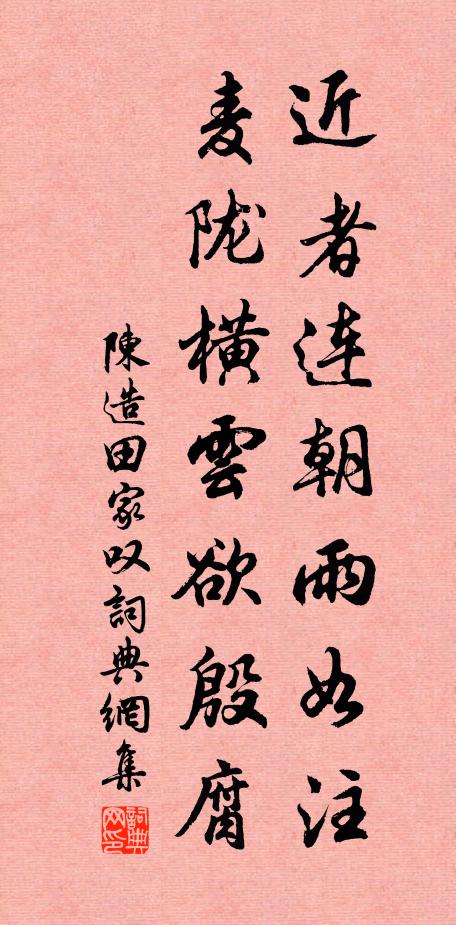 近者连朝雨如注
麦陇横雲欲殷腐
陳造田家叹詞典網集
詞典网印